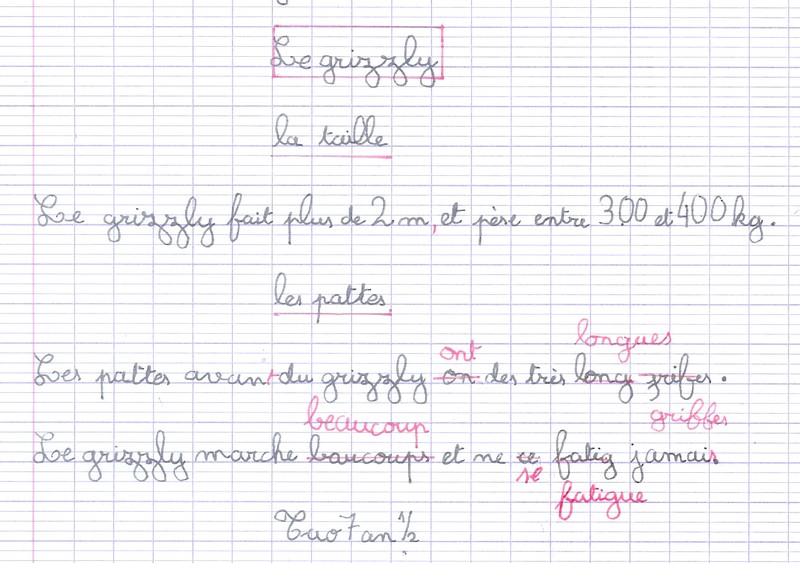 Le grizzly
la taille
Le grizzly fait plus de 2 m, et pèse entre 300 et 400 kg.
les pattes
ont longues
Les pattes avant du grizzly on des très long grifes.
beaucoup griffes
Le grizzly marche baucoups et ne ce fatig jamais
se fatigue
7 an 1/2